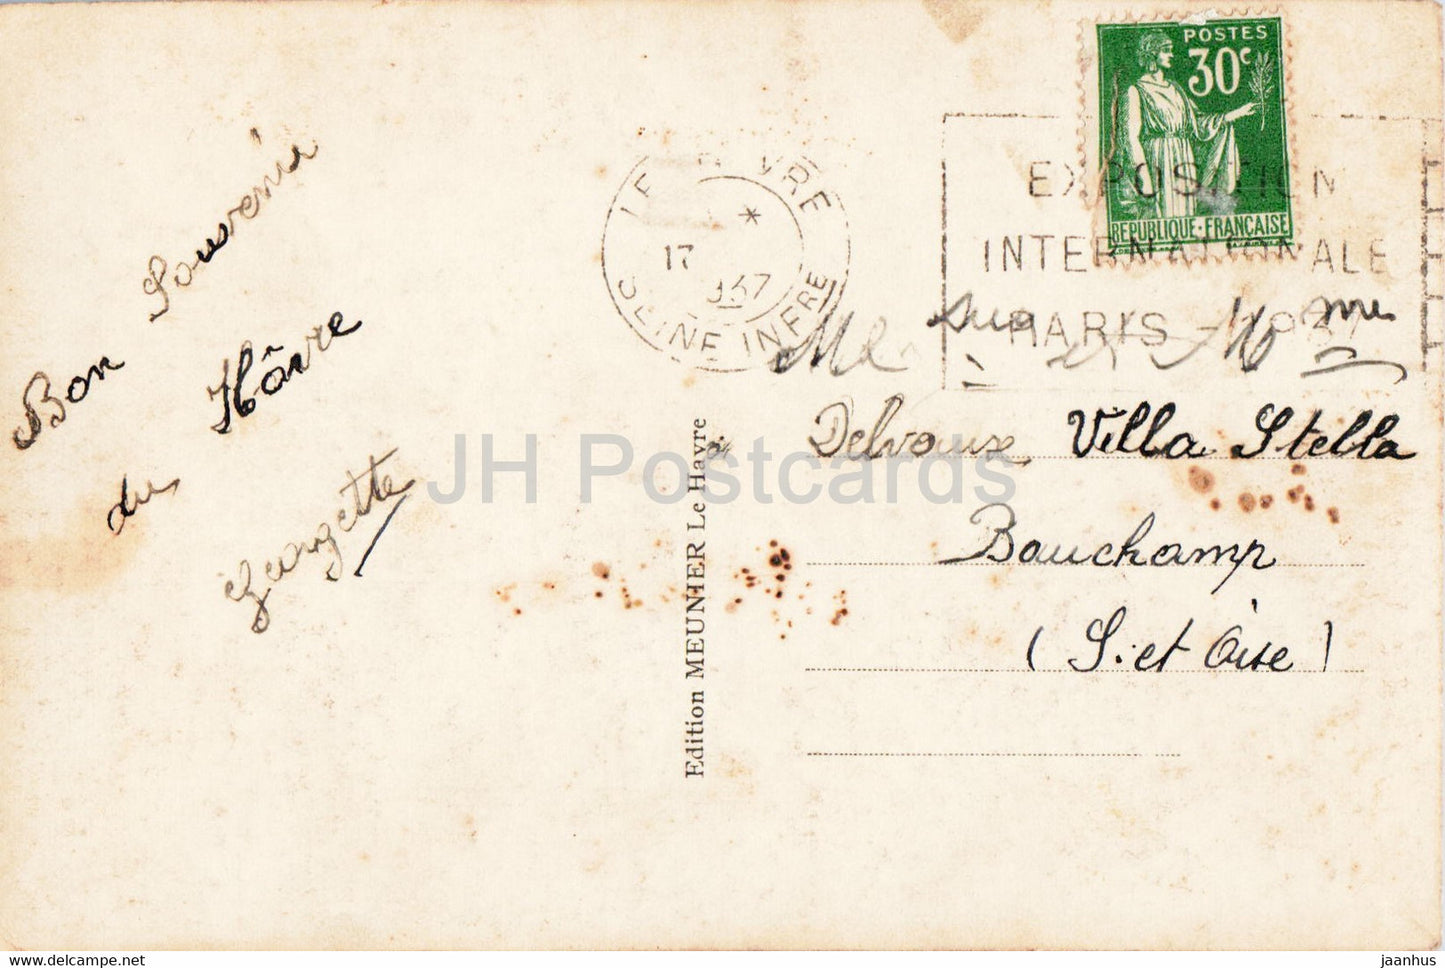 Bon Souvenir
du Hâvre
Georgette
Edition MEUNIER Le Havre
POSTES
30c
REPUBLIQUE·FRANÇAISE
LE HAVRE
*
17
1937
SEINE INFRE
EXPOSITION
INTERNATIONALE
PARIS - 1937
Delvoux Villa Stella
Bauchamp
(S. et Oise)
JH Postcards
jaanhus